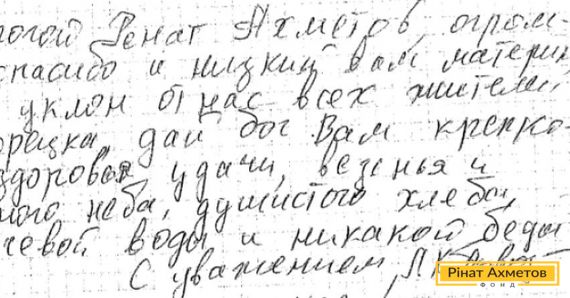 рогой Ренат Ахметов, огром-
спасибо и низкий Вам материн
уклон от нас всех жителей
орецка, дай бог Вам крепко-
здоровья, удачи, везенья и
ного неба, душистого хлеба,
чевой воды и никакой беды
С уважением,
Рінат Ахметов
ФОНД